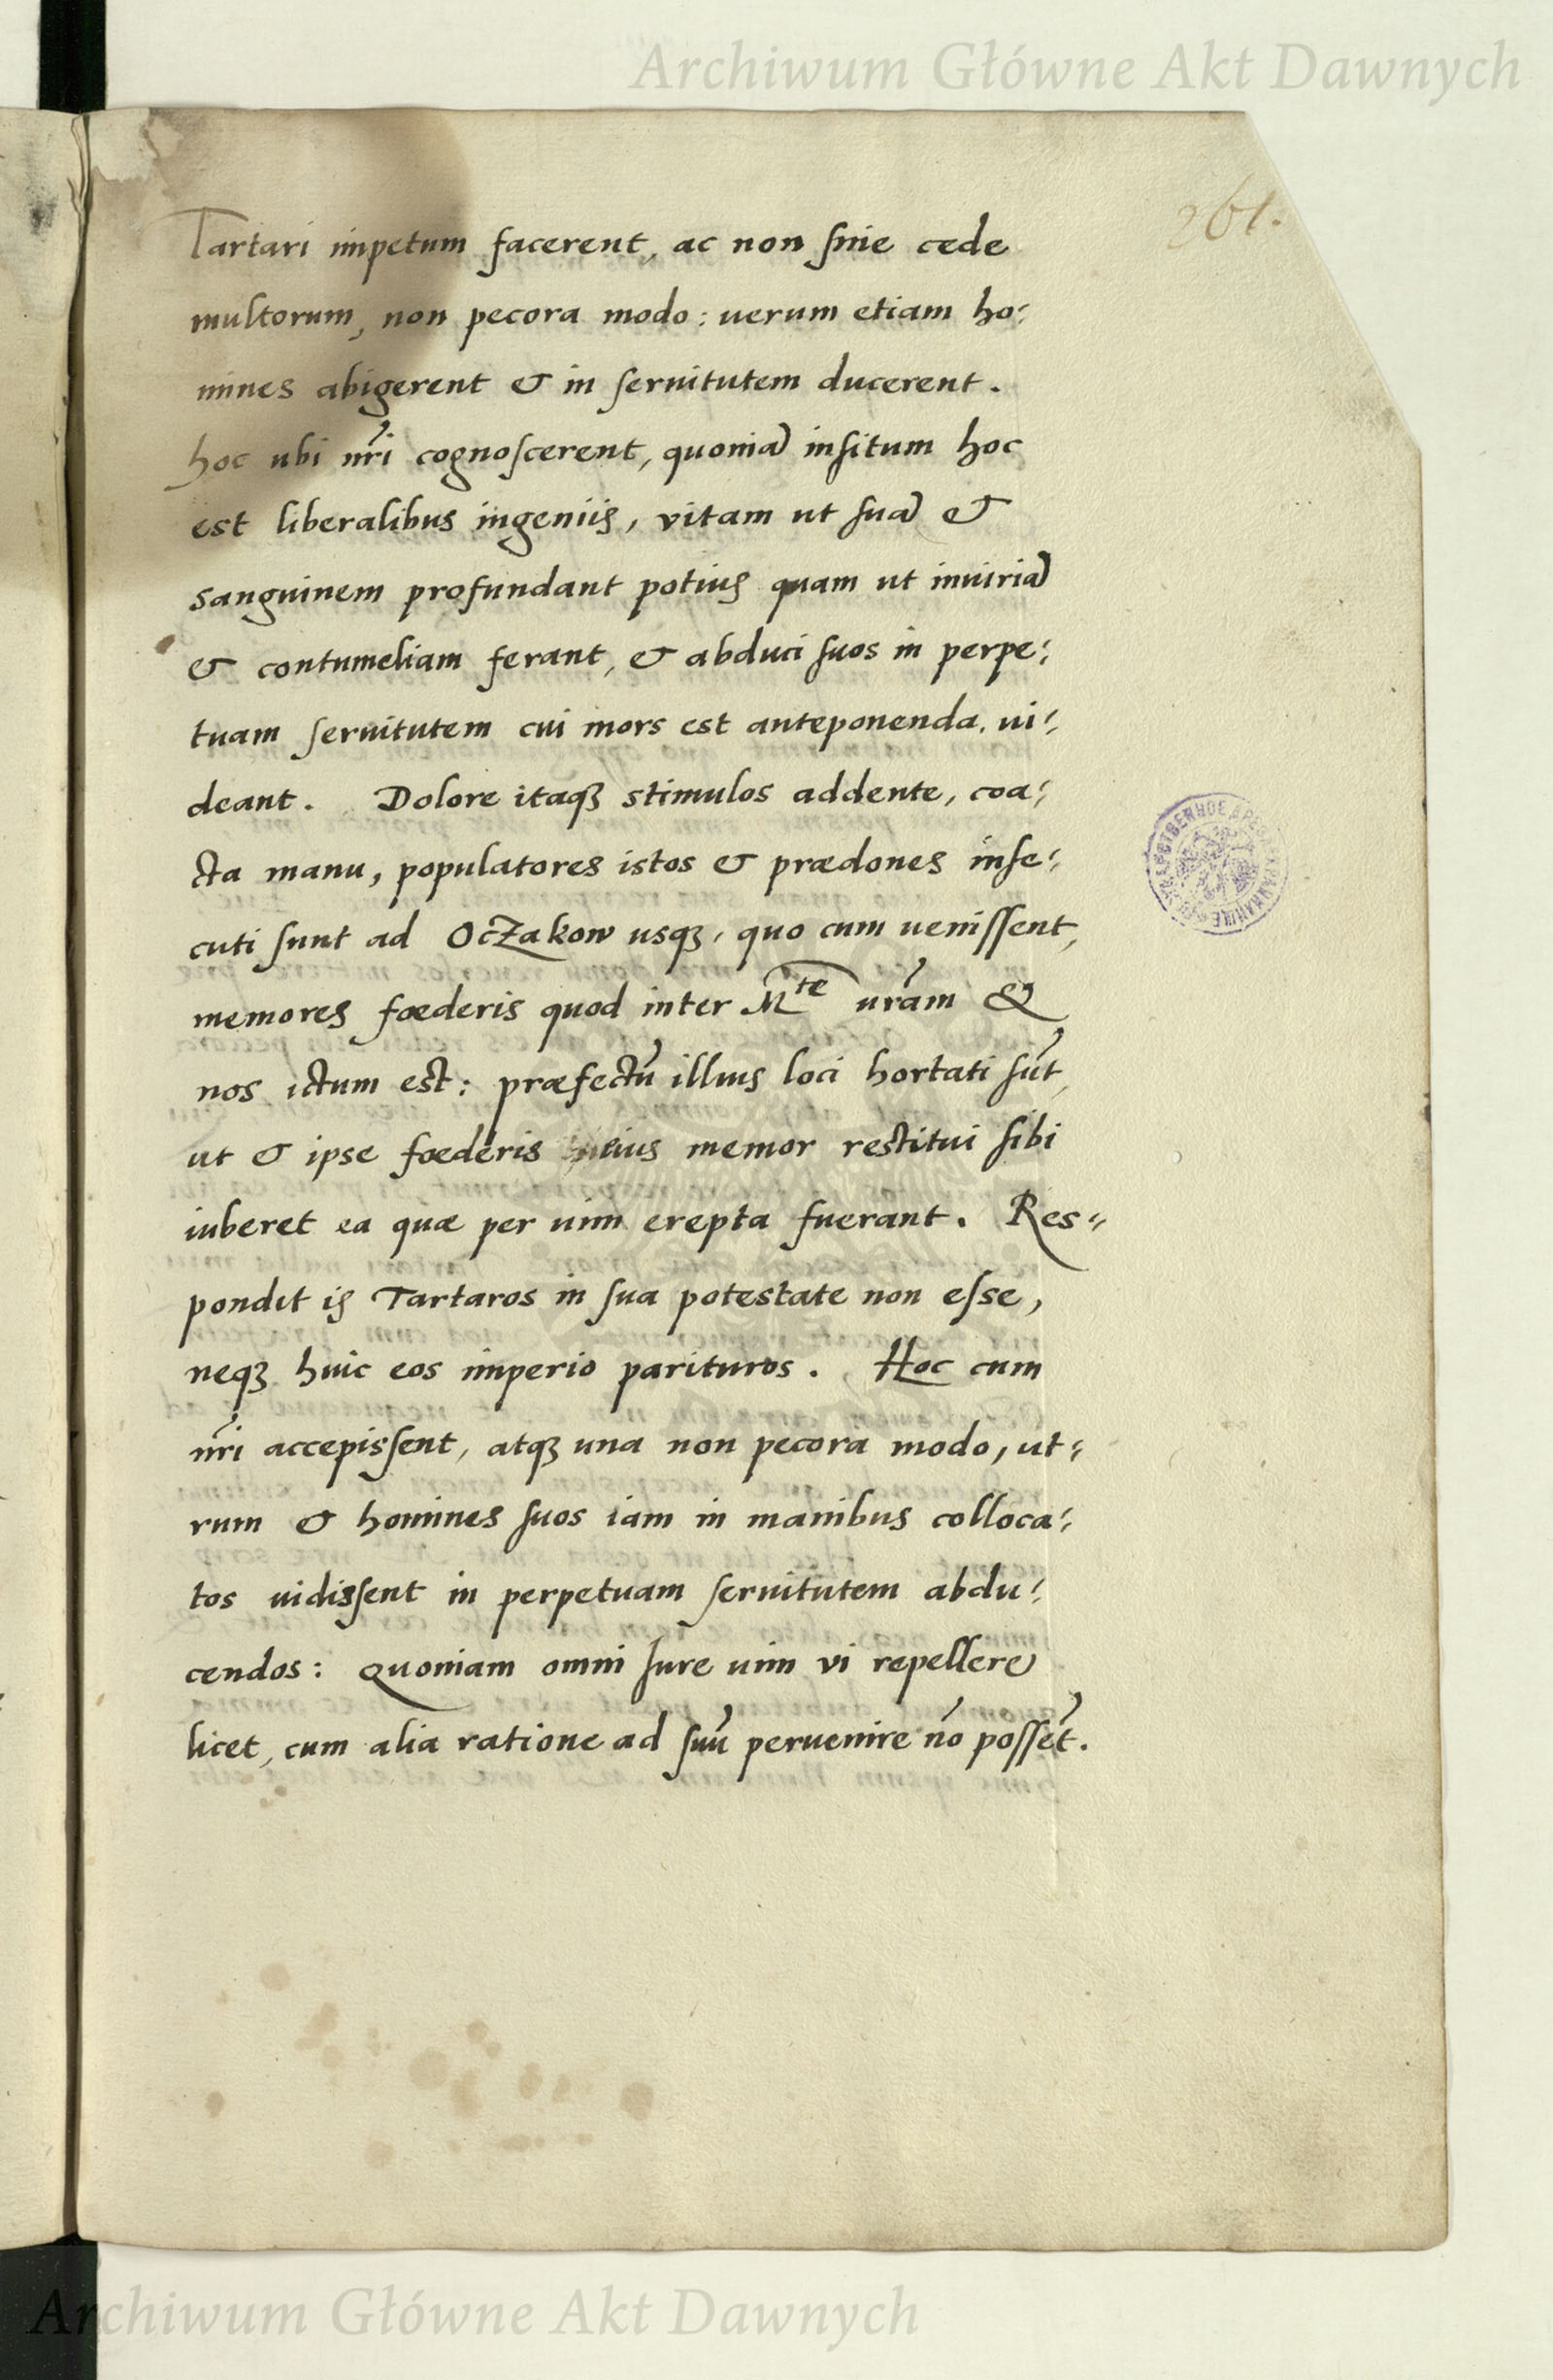 Archiwum Główne Akt Dawnych
261.
Tartari impetum facerent, ac non sine cede
multorum, non pecora modo: uerum etiam ho-
mines abigerent & in seruitutem ducerent.
hoc ubi nr̃i cognoscerent, quoniã insitum hoc
est liberalibus ingeniis, vitam ut suã &
sanguinem profundant potius quam ut iniuriã
& contumeliam ferant, & abduci suos in perpe-
tuam seruitutem cui mors est anteponenda, ui-
deant. Dolore itaqꝫ stimulos addente, coa-
cta manu, populatores istos & prædones inse-
cuti sunt ad Oczakow usqꝫ, quo cum uenissent,
memores fœderis quod inter M^te ur̃am &
nos ictum est: præfectũ illius loci hortati sũt
ut & ipse fœderis memor restitui sibi
iuberet ea quæ per uim erepta fuerant. Res-
pondit is Tartaros in sua potestate non esse,
neqꝫ huic eos imperio parituros. Hoc cum
nr̃i accepissent, atqꝫ una non pecora modo, ut-
rum & homines suos iam in manibus colloca-
tos uidissent in perpetuam seruitutem abdu-
cendos: Quoniam omni Iure uim vi repellere
licet, cum alia ratione ad suũ peruenire nõ possẽt.
Archiwum Główne Akt Dawnych